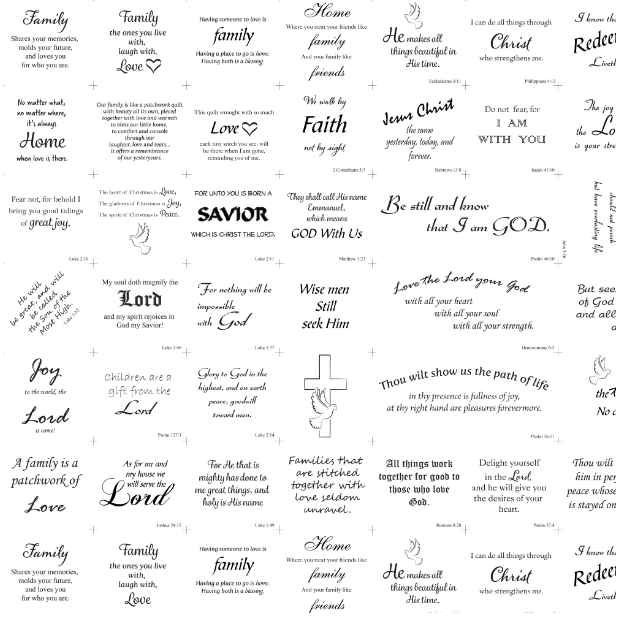 Family
Shares your memories,
molds your future,
and loves you
for who you are.
Family
the ones you live
with,
laugh with,
Love
Having someone to love is
family
Having a place to go is home.
Having both is a blessing.
Home
Where you treat your friends like
family
And your family like
friends
He makes all
things beautiful in
His time.
Ecclesiastes 3:11
I can do all things through
Christ
who strengthens me.
Philippians 4:13
I know tha
Redeer
Liveth
No matter what,
no matter where,
it's always
Home
when love is there.
Our family is like a patchwork quilt
with beauty all its own, pieced
together with love and warmth
to bless our little home,
to comfort and console
through our
laughter, love and tears...
it offers a remembrance
of our yesteryears.
This quilt wrought with so much
Love
each tiny stitch you see, will
be there when I am gone,
reminding you of me.
We walk by
Faith
not by sight
2 Corinthians 5:7
Jesus Christ
the same
yesterday, today, and
forever.
Hebrews 13:8
Do not fear, for
I AM
WITH YOU
Isaiah 41:10
The joy
the Lo
is your stre
Fear not, for behold I
bring you good tidings
of great joy.
Luke 2:10
The heart of Christmas is Love,
The gladness of Christmas is Joy,
The spirit of Christmas is Peace.
FOR UNTO YOU IS BORN A
SAVIOR
WHICH IS CHRIST THE LORD.
Luke 2:11
They shall call His name
Emmanuel,
which means
GOD With Us
Matthew 1:23
Be still and know
that I am GOD.
Psalm 46:10
should not perish
but have everlasting life
He will
be great, and will
be called
the Son of the
Most High.
Luke 1:32
My soul doth magnify the
Lord
and my spirit rejoices in
God my Savior!
Luke 1:46
For nothing will be
impossible
with God
Luke 1:37
Wise men
Still
seek Him
Love the Lord your God
with all your heart
with all your soul
with all your strength.
Deuteronomy 6:5
But see
of God
and all
Joy
to the world, the
Lord
is come!
Children are a
gift from the
Lord
Psalm 127:3
Glory to God in the
highest, and on earth
peace, goodwill
toward men.
Luke 2:14
Thou wilt show us the path of life
in thy presence is fullness of joy,
at thy right hand are pleasures forevermore.
Psalm 16:11
the
No
A family is a
patchwork of
Love
As for me and
my house we
will serve the
Lord
Joshua 24:15
For He that is
mighty has done to
me great things, and
holy is His name
Luke 1:49
Families that
are stitched
together with
love seldom
unravel.
All things work
together for good to
those who love
God.
Romans 8:28
Delight yourself
in the Lord,
and he will give you
the desires of your
heart.
Psalm 37:4
Thou wilt
him in per
peace whose
is stayed on
Family
Shares your memories,
molds your future,
and loves you
for who you are.
Family
the ones you live
with,
laugh with,
Love
Having someone to love is
family
Having a place to go is home.
Having both is a blessing.
Home
Where you treat your friends like
family
And your family like
friends
He makes all
things beautiful in
His time.
I can do all things through
Christ
who strengthens me.
I know tha
Redeer
Liveth